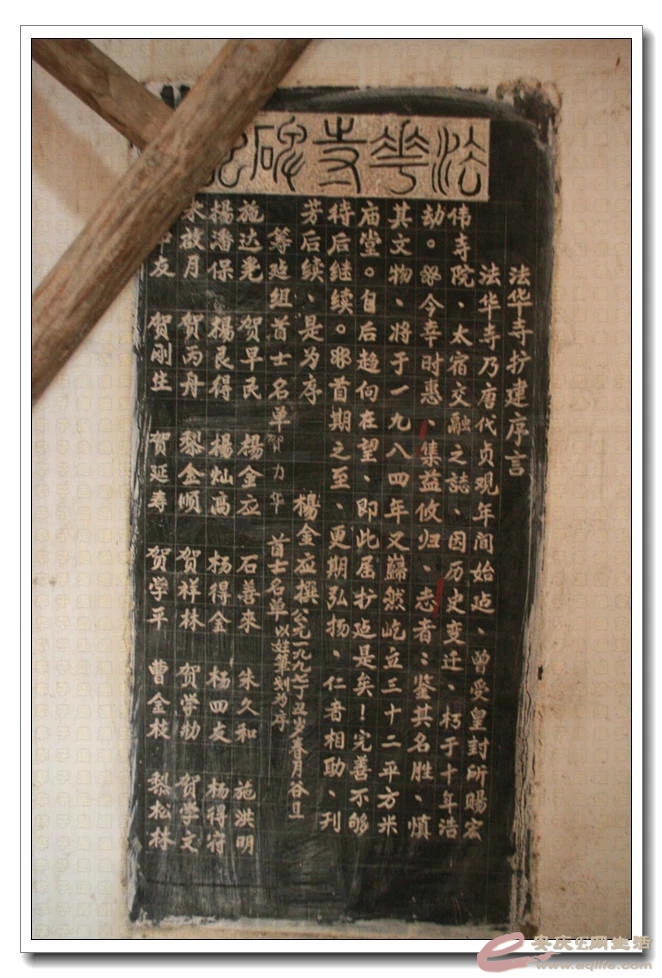 法華寺碑記
法华寺扩建序言
法华寺乃唐代贞观年间始迠、曾受皇封所赐宏
伟寺院、太宿交融之誌、因历史变迁、朽于十年浩
劫。努今奉时惠、集益攸归、志者：鉴其名胜、慎
其文物、将于一九八四年又巋然屹立三十二平方米
庙堂。自后趋向在望、即此届扩迠是矣！完善不够
待后继续。耶首期之至、更期弘扬、仁者相助、刊
芳后续、是为序
楊金应撰 公元一九九七丁丑岁春月谷旦
筹迠组首士名单 贺力华 首士名单 以姓筆划为序
施达尧 贺早民 楊金应 石善來 朱久和 施洪明
楊潘保 楊良得 楊灿高 杨得金 杨四友 杨得守
启月 贺丙舟 黎金顺 贺祥林 贺学勋 贺学文
友 贺刚生 贺延寿 贺学平 曹金枝 黎松林
安庆E网生活
www.aqlife.com